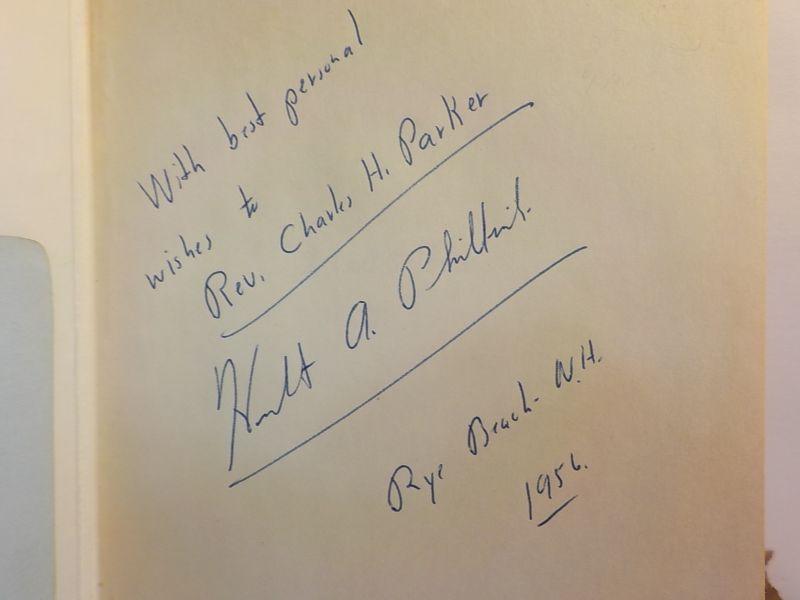 With best personal
wishes to
Rev. Charles H. Parker
A.
Rye Beach - N.H.
1956.